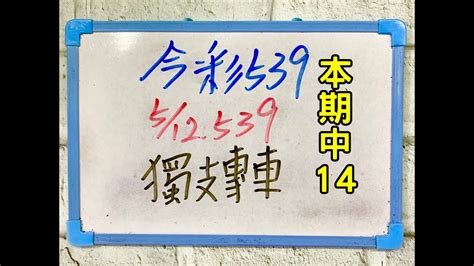 今彩539
5/12.539
獨支專車
本期中14